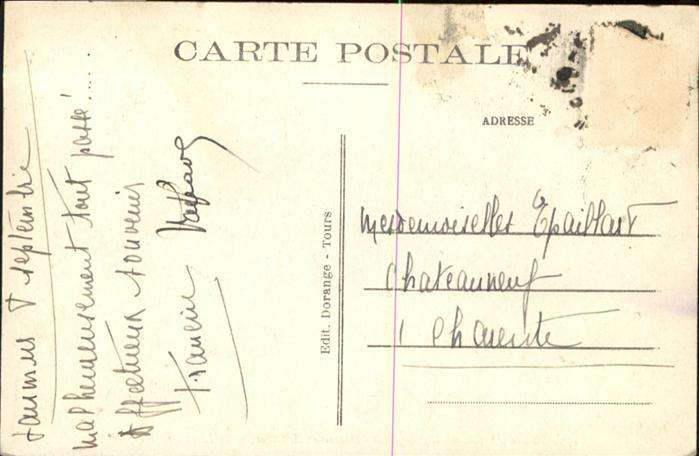 CARTE POSTALE
ADRESSE
Mesdemoiselles Epaillart
Chateauneuf
Charente
Edit. Dorange - Tours
Saumur septembre
malheureusement tout passe!....
Affectueux souvenir
Francine